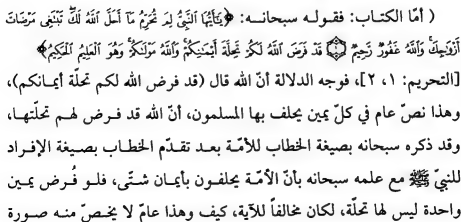 ( أمّا الكتاب: فقوله سبحانه: ﴿يَٰٓأَيُّهَا ٱلنَّبِىُّ لِمَ تُحَرِّمُ مَآ أَحَلَّ ٱللَّهُ لَكَ تَبْتَغِى مَرْضَاتَ
أَزْوَٰجِكَ وَٱللَّهُ غَفُورٌ رَّحِيمٌ ۝١ قَدْ فَرَضَ ٱللَّهُ لَكُمْ تَحِلَّةَ أَيْمَٰنِكُمْ وَٱللَّهُ مَوْلَىٰكُمْ وَهُوَ ٱلْعَلِيمُ ٱلْحَكِيمُ﴾
[التحريم: ١، ٢]، فوجه الدلالة أنّ الله قال (قد فرض الله لكم تحلّة أيمانكم)،
وهذا نصّ عام في كلّ يمين يحلف بها المسلمون، أنّ الله قد فرض لهم تحلّتها،
وقد ذكره سبحانه بصيغة الخطاب للأمّة بعد تقدّم الخطاب بصيغة الإفراد
للنبيّ ﷺ مع علمه سبحانه بأنّ الأمّة يحلفون بأيمان شتّى، فلو فُرض يمين
واحدة ليس لها تحلّة، لكان مخالفاً للآية، كيف وهذا عامّ لا يخصّ منه صورة